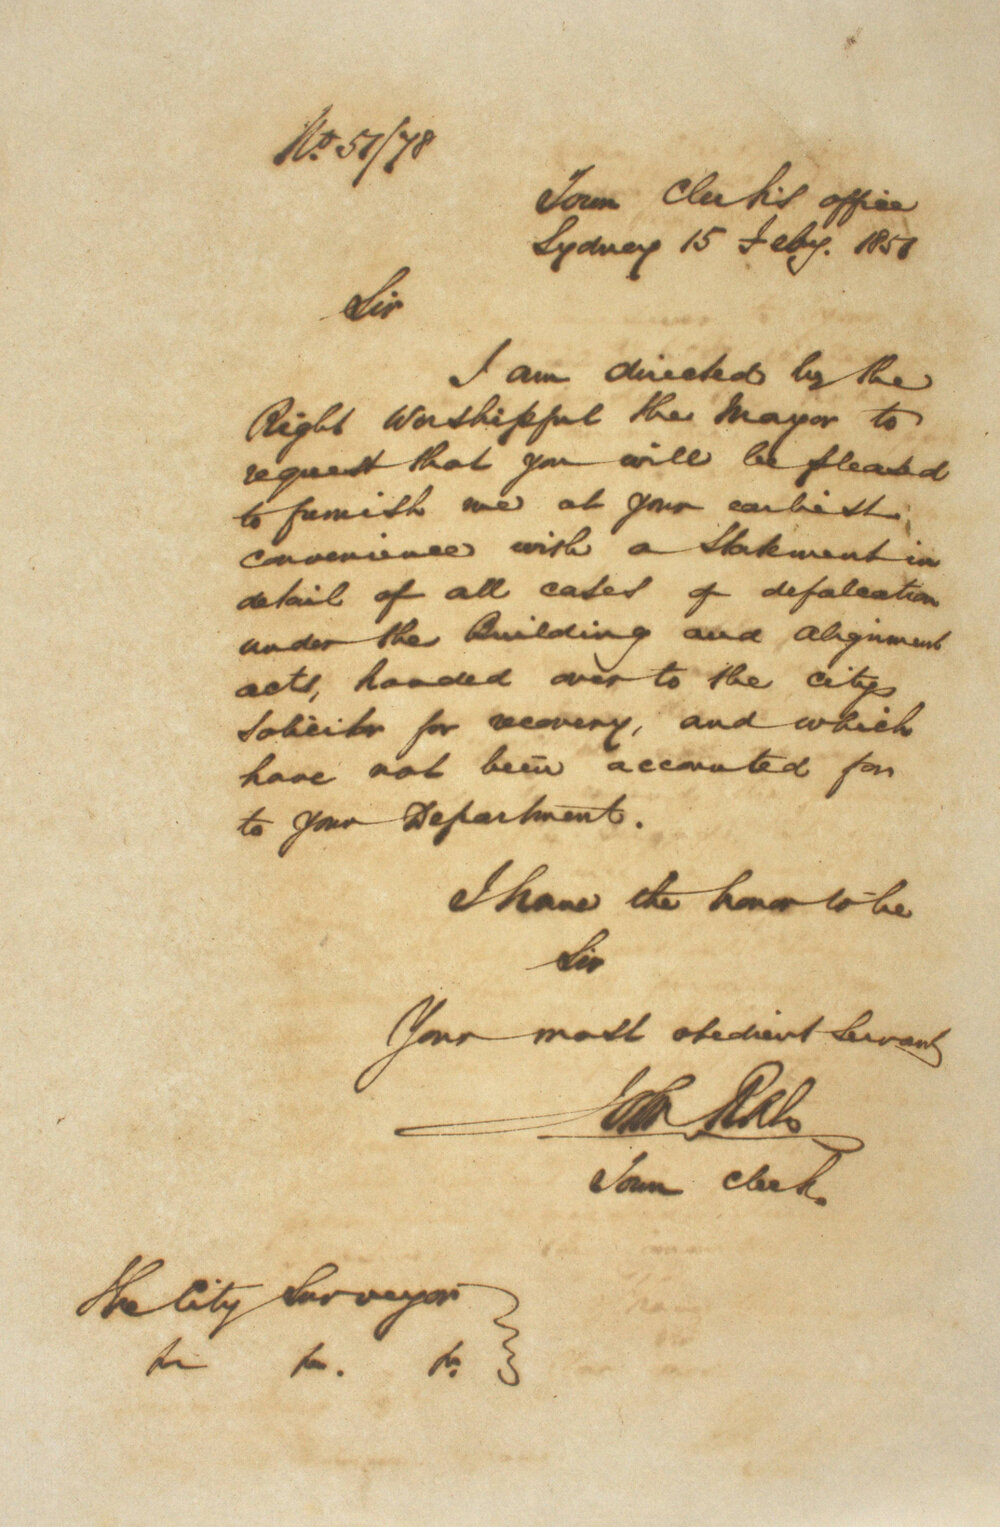 No. 51/78
Town Clerk's office
Sydney 15 Feby. 1851
Sir
I am directed by the
Right Worshipful the Mayor to
request that you will be pleased
to furnish me at your earliest
convenience with a Statement in
detail of all cases of defalcation
under the Building and alignment
acts, handed over to the City
Solicitor for recovery, and which
have not been accounted for
to your Department.
I have the honor to be
Sir
Your most obedient Servant
John
Town Clerk
The City Surveyor